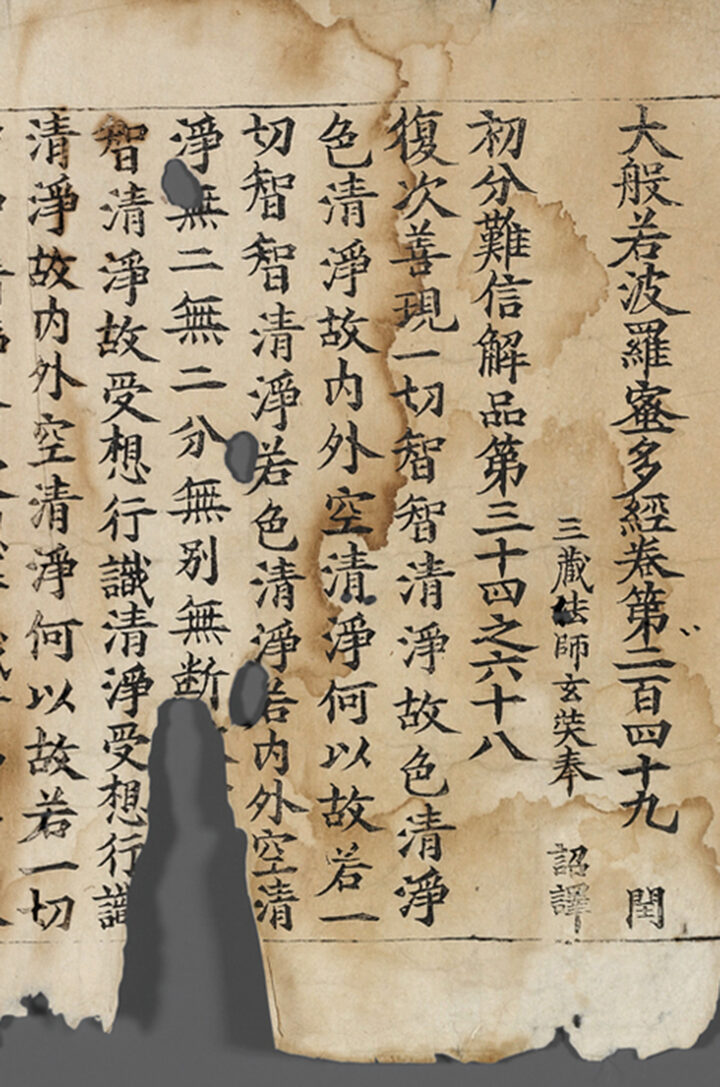 大般若波羅蜜多經卷第二百四十九 閏
三藏法師玄奘奉 詔譯
初分難信解品第三十四之六十八
復次善現一切智智清淨故色清淨
色清淨故内外空清淨何以故若一
切智智清淨若色清淨若内外空清
淨無二無二分無别無断
智清淨故受想行識清淨受想行識
清淨故内外空清淨何以故若一切